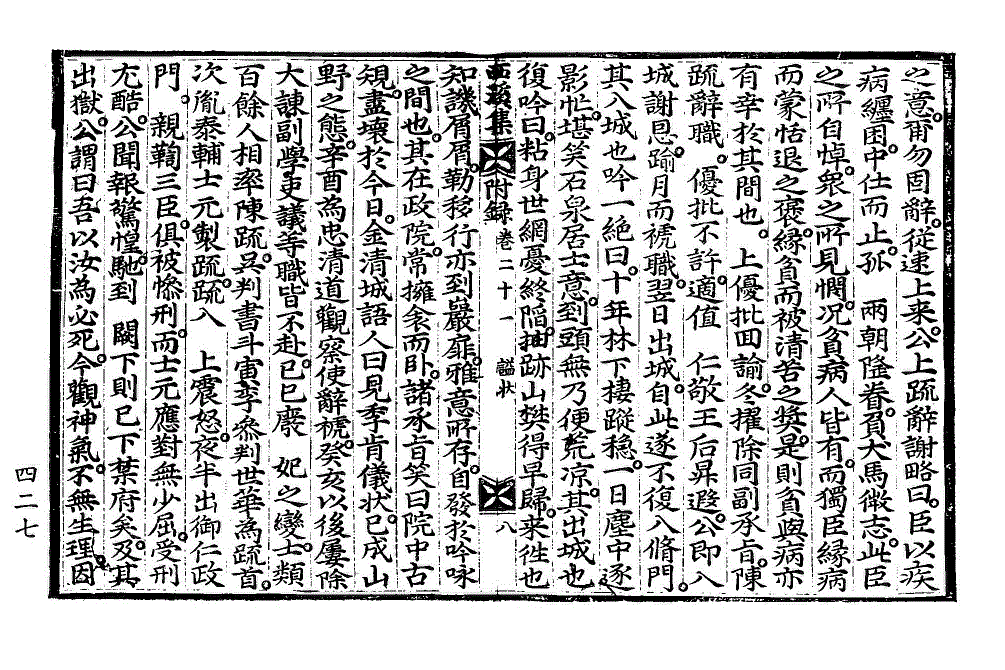 之意。爾勿固辭。從速上來。公上疏辭謝略曰。臣以疾
病纏困。中仕而止。孤 兩朝隆眷。負犬馬微志。此臣
之所自悼。衆之所見憫。况貧病人皆有。而獨臣緣病
而蒙恬退之褒。緣貧而被淸苦之奬。是則貧與病亦
有幸於其間也。 上優批回諭。冬擢除同副承旨。陳
疏辭職。 優批不許。適値 仁敬王后昇遐。公卽入
城謝恩。踰月而褫職。翌日出城。自此遂不復入脩門。
其入城也吟一絶曰。十年林下棲蹤穩。一日塵中逐
影忙。堪笑石泉居士意。到頭無乃便荒凉。其出城也
復吟曰。粘身世網憂終陷。抽跡山樊得早歸。來往也
西溪集 附錄 卷二十一 諡狀 八
知譏屑屑。勒移行亦到巖扉。雅意所存。自發於吟咏
之間也。其在政院。常擁衾而臥。諸承旨笑曰。院中古
規。盡壞於今日。金淸城語人曰。見李肯儀狀。已成山
野之態。辛酉爲忠淸道觀察使辭褫。癸亥以後屢除
大諫副學吏議等職皆不赴。己巳廢 妃之變。士類
百餘人相率陳疏。吳判書斗寅李參判世華爲疏首。
次胤泰輔士元製疏。疏入 上震怒。夜半出御仁政
門。 親鞫三臣。俱被慘刑。而士元應對無少屈。受刑
尤酷。公聞報驚惶。馳到 闕下則已下禁府矣。及其
出獄。公謂曰吾以汝爲必死。今觀神氣。不無生理。因
四二七